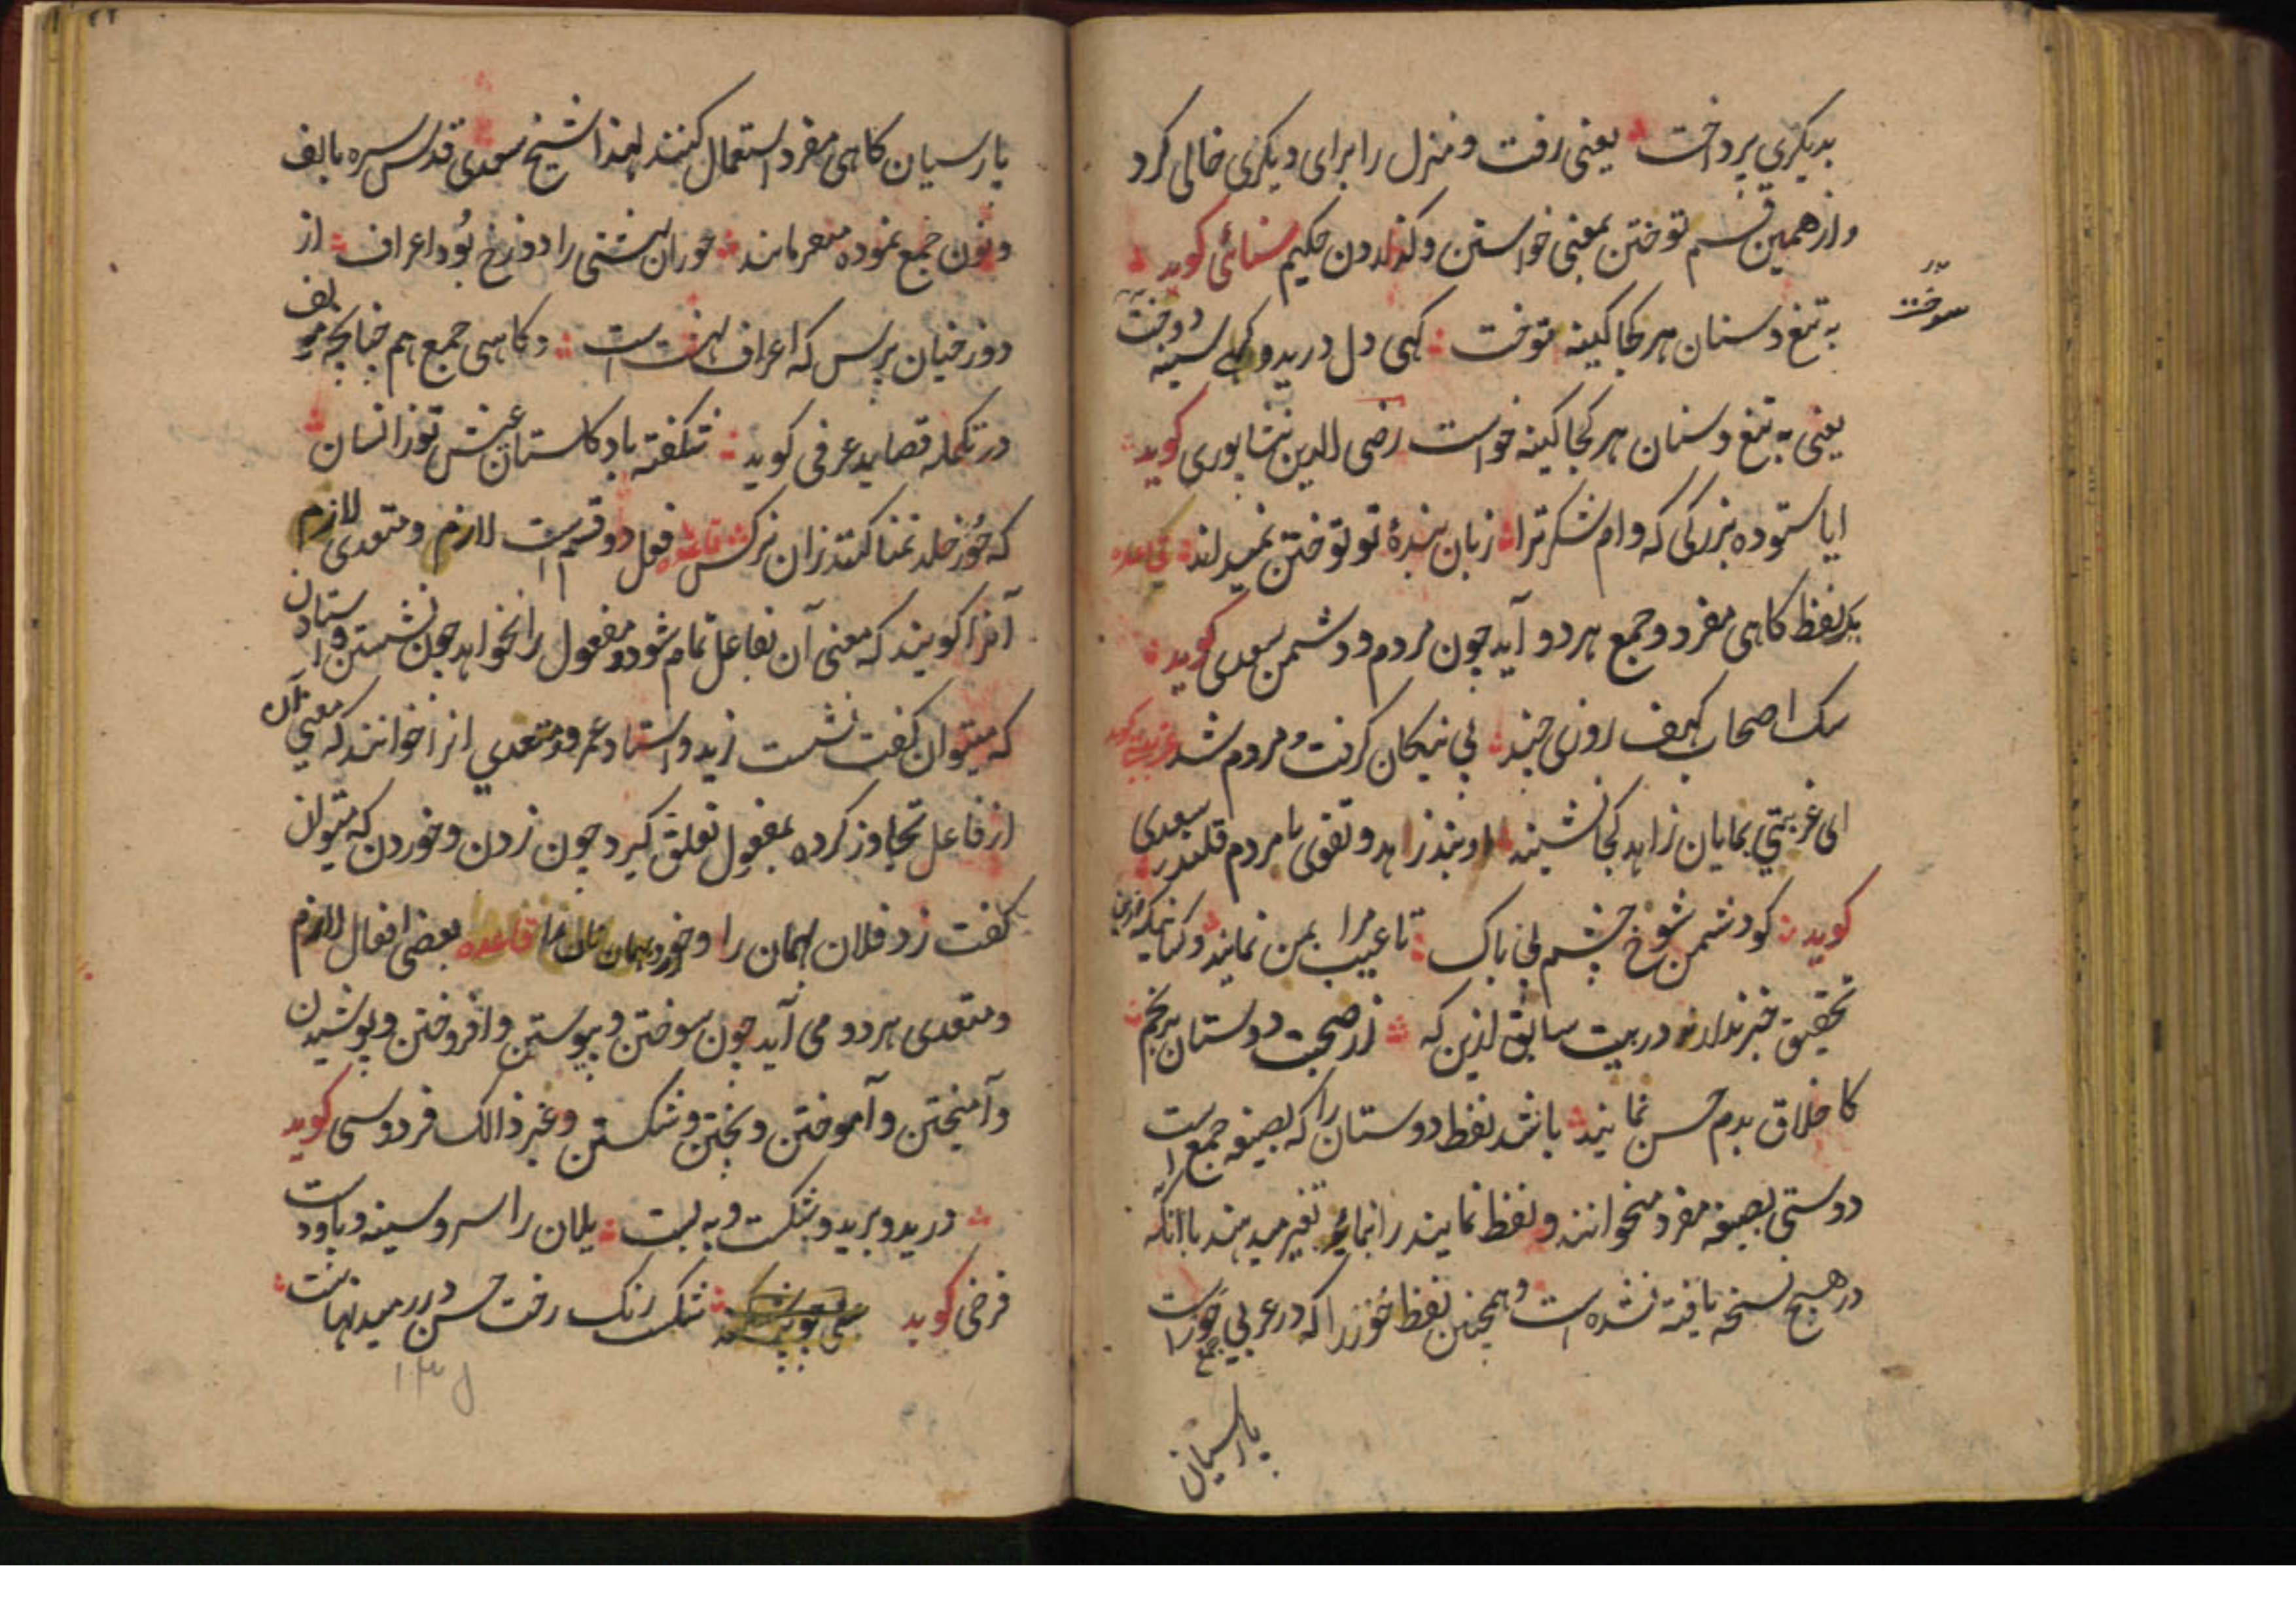 بدیکری پرداخت یعنی رفت و منزل را برای دیکری خالی کرد
و از همین قسم توختن بمعنی خواستن و کذاردن حکیم سنائی کوید
به تیغ و سنان هر کجا کینه توخت کهی دل درید و کهی سینه دوخت
سوخت
یعنی به تیغ و سنان هر کجا کینه خواست رضی الدین نیشاپوری کوید
ایا ستوده بزرکی که وام شکر ترا زبان بندهٔ تو توختن نمیداند قاعده
یک لفظ کاهی مفرد و جمع هر دو آید چون مردم و دشمن سعدی کوید
سک اصحاب کهف روزی چند پی نیکان کرفت و مردم شد
ای غربتی بمایان زاهد کجا نشیند او بند زاهد و تقوی ما مردم قلندر سعدی
کوید کو دشمن شوخ چشم بی باک تا عیب مرا بمن نمایند و کسانیکه
تحقیق خبر ندارند در بیت سابق ازین که از صحبت دوستان برنجم
کاخلاق بدم حسن نمایند باشد لفظ دوستان را که بصیغه جمع است
دوستی بصیغه مفرد میخوانند و لفظ نمایند را نماید تغیر میدهند با آنکه
در هیچ نسخه یافته نشده است و همچنین لفظ حُور را که در عربی جمع حوراست
پارسیان
پارسیان کاهی مفرد استعمال کنند لهذا شیخ سعدی قدس سره بالف
و نون جمع نموده میفرمایند حوران بهشتی را دوزخ بُود اعراف از
دوزخیان پرس که اعراف بهشت است و کاهی جمع هم چنانچه مولف
در تکمله قصاید عرفی کوید شکفته باد کلستان عیش تو زانسان
که حُور خلد تمنا کنند زان نرکس قاعده فعل دو قسم است لازم و متعدی لازم
آنرا کویند که معنی آن بفاعل تمام شود و مفعول را نخواهد چون نشستن و استادن
که میتوان کفت نشست زید و استاد عمرو و متعدی انرا خوانند که معنی آن
از فاعل تجاوز کرده بمفعول تعلق کیرد چون زدن و خوردن که میتوان
کفت زد فلان بهمان را و خورد بهمان نان را قاعده بعضی افعال لازم
و متعدی هر دو می آید چون سوختن و پیوستن و افروختن و پوشیدن
و آمیختن و آموختن و پختن و شکستن و غیر ذالک فردوسی کوید
درید و برید و شکست و به بست یلان را سر و سینه و پا و دست
فرضی کوید شکست رنک رخت حسن در رمیدنهاست
۱۳۵